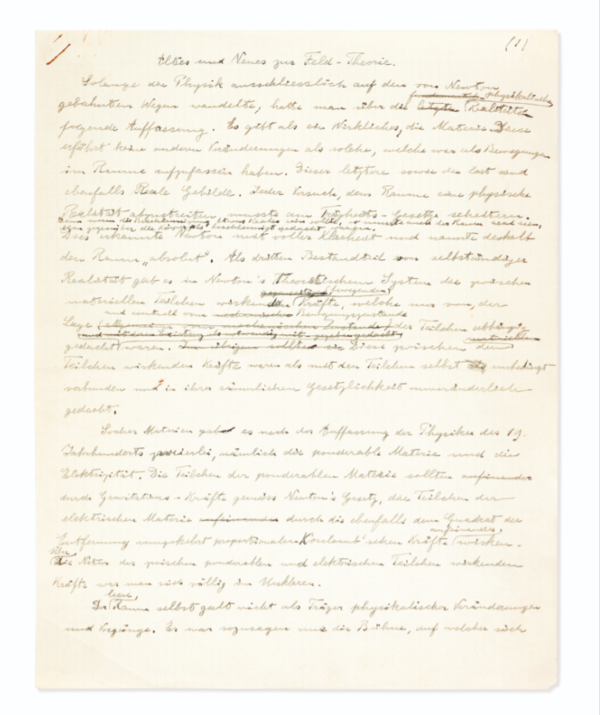 (1)
Altes und Neues zur Feld-Theorie.
Solange die Physik ausschliesslich auf den von Newton
physikalische
gebahnten Wegen wandelte, hatte man über die letzte Realität
folgende Auffassung. Es gibt als ein Wirkliches, die Materie. Diese
erfährt keine anderen Veränderungen als solche, welche wir als Bewegungen
im Raume aufzufassen haben. Dieser letztere sowie die Zeit sind
ebenfalls Reale Gebilde. Jeder Versuch, dem Raume eine physische
Realität abzustreiten musste am Trägheits-Gesetze scheitern.
Dies erkannte Newton mit voller Klarheit und nannte deshalb
den Raum „absolut". Als dritten Bestandteil von selbständiger
Realität gab es in Newton's Theoretischem System die zwischen
materiellen Teilchen wirkenden Kräfte, welche nur von der
und eventuell vom Bewegungszustande
Lage der Teilchen abhängig
gedacht waren. Diese zwischen den
materiellen
Teilchen wirkenden Kräfte waren als mit den Teilchen selbst unbedingt
verbunden und in ihrer räumlichen Gesetzlichkeit unveränderlich
gedacht.
Solcher Materien gab es nach der Auffassung der Physiker des 19.
Jahrhunderts zweierlei, nämlich die ponderable Materie und die
Elektrizität. Die Teilchen der ponderablen Materie sollten aufeinander
durch Gravitations-Kräfte gemäss Newton's Gesetz, die Teilchen der
elektrischen Materie aufeinander durch die ebenfalls dem Quadrat der
aufeinander
Entfernung umgekehrt proportionalen Coulomb'schen Kräfte wirken.
Über
die Natur der zwischen ponderablen und elektrischen Teilchen wirkenden
Kräfte war man sich völlig im Unklaren.
leere
Der Raum selbst galt nicht als Träger physikalischer Veränderungen
und Vorgänge. Er war sozusagen nur die Bühne, auf welcher sich